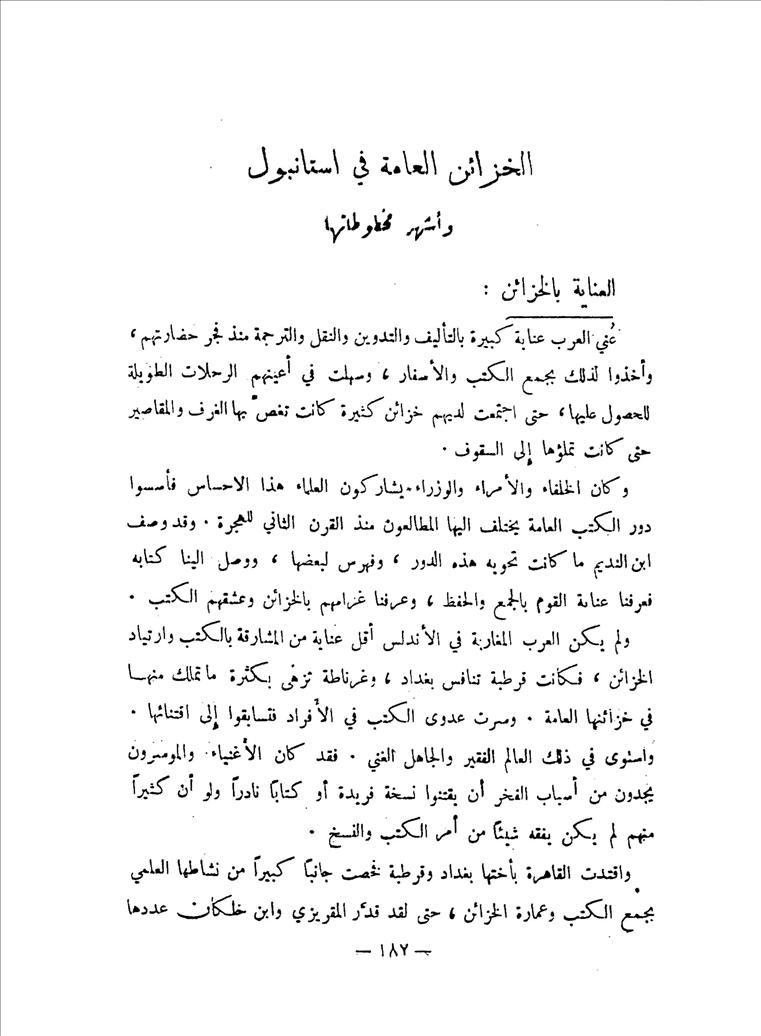 الخزائن العامة في استانبول
وأشهر مخطوطاتها
العناية بالخزائن :
عُني العرب عناية كبيرة بالتأليف والتدوين والنقل والترجمة منذ فجر حضارتهم ،
وأخذوا لذلك بجمع الكتب والأسفار ، وسهلت في أعينهم الرحلات الطويلة
للحصول عليها ، حتى اجتمعت لديهم خزائن كثيرة كانت تغصّ بها الغرف والمقاصير
حتى كانت تملؤها إلى السقوف .
وكان الخلفاء والأمراء والوزراء يشاركون العلماء هذا الاحساس فأسسوا
دور الكتب العامة يختلف اليها المطالعون منذ القرن الثاني للهجرة . وقد وصف
ابن النديم ما كانت تحويه هذه الدور ، وفهرس لبعضها ، ووصل الينا كتابه
فعرفنا عناية القوم بالجمع والحفظ ، وعرفنا غرامهم بالخزائن وعشقهم الكتب .
ولم يكن العرب المغاربة في الأندلس أقل عناية من المشارقة بالكتب وارتياد
الخزائن ، فكانت قرطبة تنافس بغداد ، وغرناطة تزهى بكثرة ما تملك منها
في خزائنها العامة . وسرت عدوى الكتب في الأفراد فتسابقوا إلى اقتنائها .
واستوى في ذلك العالم الفقير والجاهل الغني . فقد كان الأغنياء والموسرون
يجدون من أسباب الفخر أن يقتنوا نسخة فريدة أو كتاباً نادراً ولو أن كثيراً
منهم لم يكن يفقه شيئاً من أمر الكتب والنسخ .
واقتدت القاهرة بأختها بغداد وقرطبة فخصت جانباً كبيراً من نشاطها العلمي
بجمع الكتب وعمارة الخزائن ، حتى لقد قدّر المقريزي وابن خلكان عددها
— ١٨٧ —